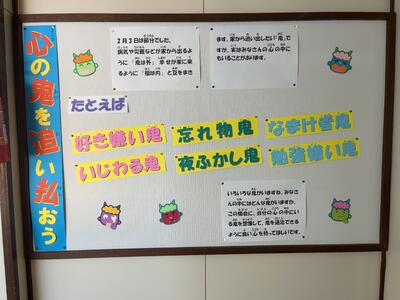 心の鬼を追い払おう
2月3日は節分でした。
病気や災難などが家から出るよ
うに「鬼は外」幸せが家に来
るように「福は内」と豆をまき
ます。家から追い出したい「鬼」で
すが、実はみなさんの心の中に
もいることがあります。
たとえば
好き嫌い鬼
忘れ物鬼
なまけ者鬼
いじわる鬼
夜ふかし鬼
勉強嫌い鬼
いろいろな鬼がいますね。みなさ
んの中にはどんな鬼がいますか。
この機会に、自分の心の中にい
る鬼を想像して、鬼を退治できる
ように良い心を持ってほしいです。